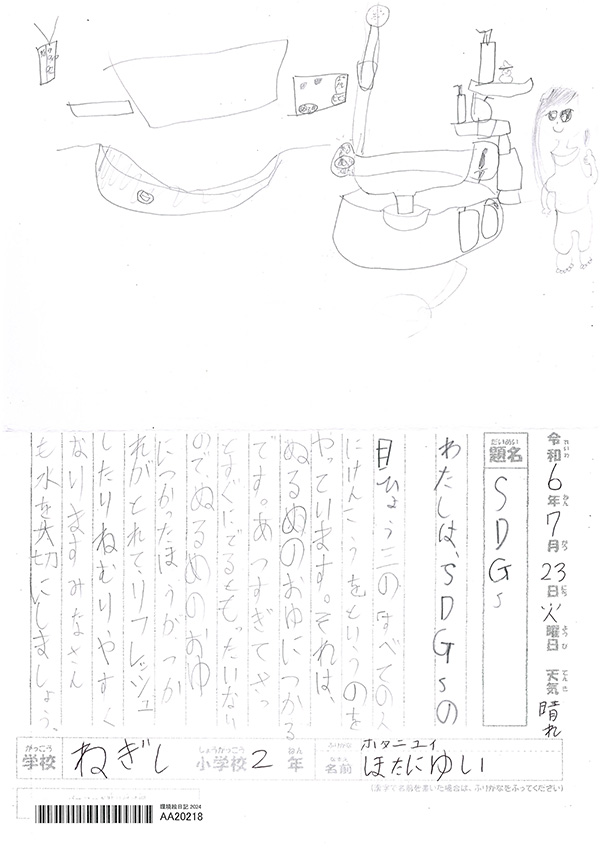 令和6年7月23日火曜日 天気 晴れ
題名 SDGs
わたしは、SDGsの
目ひょう三の「すべての人
にけんこうを」というのを
やっています。それは、
ぬるめのおゆにつかる
です。あつすぎてさっ
とすぐにでるともったいない
のでぬるめのおゆ
につかったほうがつか
れがとれて、リフレッシュ
したりねむりやすく
なりますみなさん
も水を大切にしましょう。
学校 ねぎし 小学校 2 年
ふりがな ホタニユイ
名前 ほたにゆい
(漢字で名前を書いた場合は、ふりがなをふってください)
環境絵日記 2024
AA20218